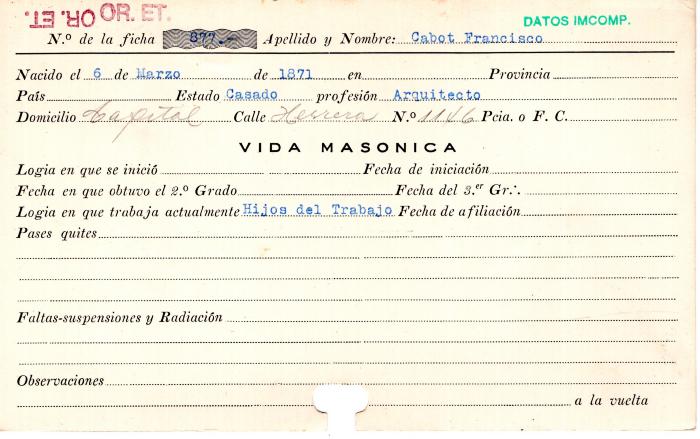 OR. ET. OR. ET.
DATOS IMCOMP.
N.º de la ficha 877.- Apellido y Nombre: Cabot Francisco
Nacido el 6 de Marzo de 1871 en Provincia
País Estado Casado profesión Arquitecto
Domicilio Capital Calle Herrera N.º 1146 Pcia. o F. C.
VIDA MASONICA
Logia en que se inició Fecha de iniciación
Fecha en que obtuvo el 2.º Grado Fecha del 3.er Gr∴
Logia en que trabaja actualmente Hijos del Trabajo Fecha de afiliación
Pases quites
Faltas-suspensiones y Radiación
Observaciones
a la vuelta